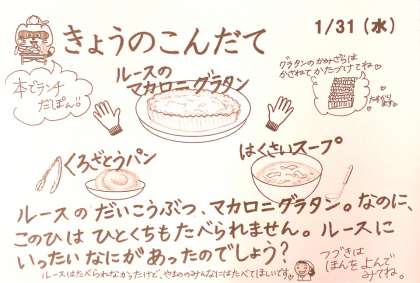 きょうのこんだて
1/31(水)
本でランチだぽん!!
ルースの
マカロニグラタン
グラタンのかみざらは
かさねてかたづけてね♡
たすかります。
くろざとうパン
はくさいスープ
ルースのだいこうぶつ、マカロニグラタン。なのに、
このひはひとくちもたべられません。ルースに
いったいなにがあったのでしょう?
ルースはたべられなかったけど、やまのみんなにはたべてほしいです♡
つづきは
ほんをよんで
みてね。